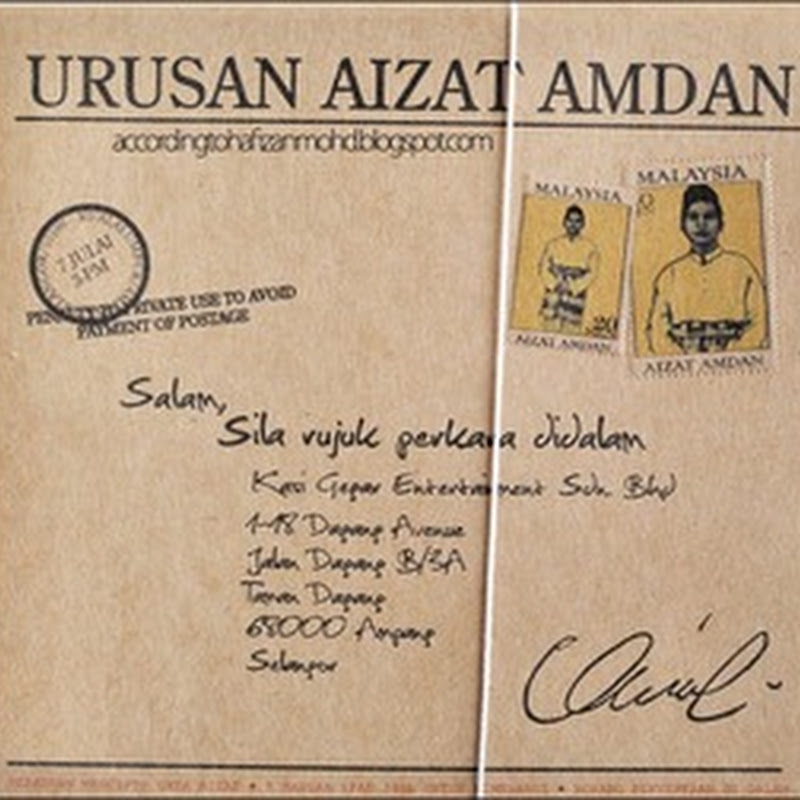 URUSAN AIZAT AMDAN
accordingtohafizanmohd.blogspot.com
MALAYSIA
20
AIZAT AMDAN
MALAYSIA
AIZAT AMDAN
7 JULAI
3 PM
PRIVATE USE TO AVOID
PAYMENT OF POSTAGE
Salam,
Sila rujuk perkara didalam
Kasi Gegar Entertainment Sdn Bhd
1-18 Dagang Avenue
Jalan Dagang B/3A
Taman Dagang
68000 Ampang
Selangor